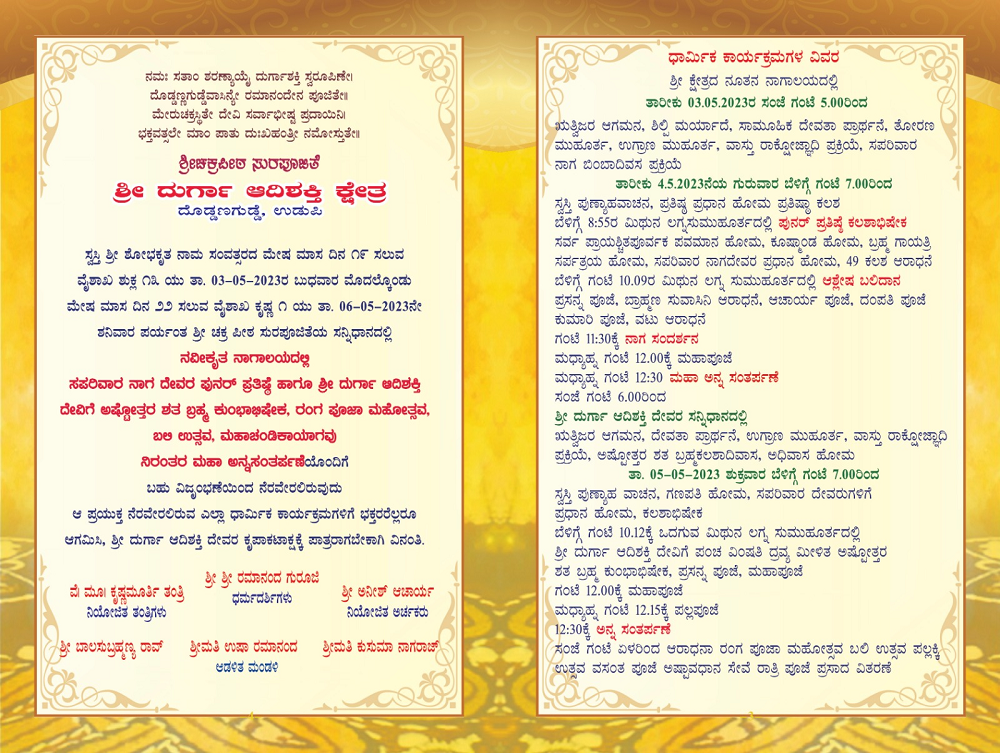 ನಮಃ ಸತಾಂ ಶರಣ್ಯಾಯೈ ದುರ್ಗಾಶಕ್ತಿ ಸ್ವರೂಪಿಣೇ।
ದೊಡ್ಡಣ್ಣಗುಡ್ಡೆವಾಸಿನ್ಯೇ ರಮಾನಂದೇನ ಪೂಜಿತೇ॥
ಮೇರುಚಕ್ರಸ್ಥಿತೇ ದೇವಿ ಸರ್ವಾಭೀಷ್ಟ ಪ್ರದಾಯಿನಿ।
ಭಕ್ತವತ್ಸಲೇ ಮಾಂ ಪಾತು ದುಃಖಹಂತ್ರೀ ನಮೋಸ್ತುತೇ॥
ಶ್ರೀಚಕ್ರಪೀಠ ಸುರಪೂಜಿತೆ
ಶ್ರೀ ದುರ್ಗಾ ಆದಿಶಕ್ತಿ ಕ್ಷೇತ್ರ
ದೊಡ್ಡಣಗುಡ್ಡೆ, ಉಡುಪಿ
ಸ್ವಸ್ತಿ ಶ್ರೀ ಶೋಭಕೃತ ನಾಮ ಸಂವತ್ಸರದ ಮೇಷ ಮಾಸ ದಿನ ೧೯ ಸಲುವ
ವೈಶಾಖ ಶುಕ್ಲ ೧೩ ಯು ತಾ. 03-05-2023ರ ಬುಧವಾರ ಮೊದಲ್ಗೊಂಡು
ಮೇಷ ಮಾಸ ದಿನ ೨೨ ಸಲುವ ವೈಶಾಖ ಕೃಷ್ಣ ೧ ಯು ತಾ. 06-05-2023ನೇ
ಶನಿವಾರ ಪರ್ಯಂತ ಶ್ರೀ ಚಕ್ರ ಪೀಠ ಸುರಪೂಜಿತೆಯ ಸನ್ನಿಧಾನದಲ್ಲಿ
ನವೀಕೃತ ನಾಗಾಲಯದಲ್ಲಿ
ಸಪರಿವಾರ ನಾಗ ದೇವರ ಪುನರ್ ಪ್ರತಿಷ್ಠೆ ಹಾಗೂ ಶ್ರೀ ದುರ್ಗಾ ಆದಿಶಕ್ತಿ
ದೇವಿಗೆ ಅಷ್ಟೋತ್ತರ ಶತ ಬ್ರಹ್ಮ ಕುಂಭಾಭಿಷೇಕ, ರಂಗ ಪೂಜಾ ಮಹೋತ್ಸವ,
ಬಲಿ ಉತ್ಸವ, ಮಹಾಚಂಡಿಕಾಯಾಗವು
ನಿರಂತರ ಮಹಾ ಅನ್ನಸಂತರ್ಪಣೆಯೊಂದಿಗೆ
ಬಹು ವಿಜೃಂಭಣೆಯಿಂದ ನೆರವೇರಲಿರುವುದು
ಆ ಪ್ರಯುಕ್ತ ನೆರವೇರಲಿರುವ ಎಲ್ಲಾ ಧಾರ್ಮಿಕ ಕಾರ್ಯಕ್ರಮಗಳಿಗೆ ಭಕ್ತರರೆಲ್ಲರೂ
ಆಗಮಿಸಿ, ಶ್ರೀ ದುರ್ಗಾ ಆದಿಶಕ್ತಿ ದೇವರ ಕೃಪಾಕಟಾಕ್ಷಕ್ಕೆ ಪಾತ್ರರಾಗಬೇಕಾಗಿ ವಿನಂತಿ.
ಶ್ರೀ ಶ್ರೀ ರಮಾನಂದ ಗುರೂಜಿ
ಧರ್ಮದರ್ಶಿಗಳು
ವೆ। ಮೂ। ಕೃಷ್ಣಮೂರ್ತಿ ತಂತ್ರಿ
ನಿಯೋಜಿತ ತಂತ್ರಿಗಳು
ಶ್ರೀ ಅನೀಶ್ ಆಚಾರ್ಯ
ನಿಯೋಜಿತ ಅರ್ಚಕರು
ಶ್ರೀ ಬಾಲಸುಬ್ರಹ್ಮಣ್ಯ ರಾವ್ ಶ್ರೀಮತಿ ಉಷಾ ರಮಾನಂದ ಶ್ರೀಮತಿ ಕುಸುಮಾ ನಾಗರಾಜ್
ಆಡಳಿತ ಮಂಡಳಿ
ಧಾರ್ಮಿಕ ಕಾರ್ಯಕ್ರಮಗಳ ವಿವರ
ಶ್ರೀ ಕ್ಷೇತ್ರದ ನೂತನ ನಾಗಾಲಯದಲ್ಲಿ
ತಾರೀಕು 03.05.2023ರ ಸಂಜೆ ಗಂಟೆ 5.00ರಿಂದ
ಋತ್ವಿಜರ ಆಗಮನ, ಶಿಲ್ಪಿ ಮರ್ಯಾದೆ, ಸಾಮೂಹಿಕ ದೇವತಾ ಪ್ರಾರ್ಥನೆ, ತೋರಣ
ಮುಹೂರ್ತ, ಉಗ್ರಾಣ ಮುಹೂರ್ತ, ವಾಸ್ತು ರಾಕ್ಷೋಜ್ಞಾದಿ ಪ್ರಕ್ರಿಯೆ, ಸಪರಿವಾರ
ನಾಗ ಬಿಂಬಾದಿವಸ ಪ್ರಕ್ರಿಯೆ
ತಾರೀಕು 4.5.2023ನೆಯ ಗುರುವಾರ ಬೆಳಿಗ್ಗೆ ಗಂಟೆ 7.00ರಿಂದ
ಸ್ವಸ್ತಿ ಪುಣ್ಯಾಹವಾಚನ, ಪ್ರತಿಷ್ಠ ಪ್ರಧಾನ ಹೋಮ ಪ್ರತಿಷ್ಠಾ ಕಲಶ
ಬೆಳಿಗ್ಗೆ 8:55ರ ಮಿಥುನ ಲಗ್ನಸುಮುಹೂರ್ತದಲ್ಲಿ ಪುನರ್ ಪ್ರತಿಷ್ಠೆ ಕಲಶಾಭಿಷೇಕ
ಸರ್ವ ಪ್ರಾಯಶ್ಚಿತಪೂರ್ವಕ ಪವಮಾನ ಹೋಮ, ಕೂಷ್ಮಾಂಡ ಹೋಮ, ಬ್ರಹ್ಮ ಗಾಯತ್ರಿ
ಸರ್ಪತ್ರಯ ಹೋಮ, ಸಪರಿವಾರ ನಾಗದೇವರ ಪ್ರಧಾನ ಹೋಮ, 49 ಕಲಶ ಆರಾಧನೆ
ಬೆಳಿಗ್ಗೆ ಗಂಟೆ 10.09ರ ಮಿಥುನ ಲಗ್ನ ಸುಮುಹೂರ್ತದಲ್ಲಿ ಆಶ್ಲೇಷ ಬಲಿದಾನ
ಪ್ರಸನ್ನ ಪೂಜೆ, ಬ್ರಾಹ್ಮಣ ಸುವಾಸಿನಿ ಆರಾಧನೆ, ಆಚಾರ್ಯ ಪೂಜೆ, ದಂಪತಿ ಪೂಜೆ
ಕುಮಾರಿ ಪೂಜೆ, ವಟು ಆರಾಧನೆ
ಗಂಟೆ 11:30ಕ್ಕೆ ನಾಗ ಸಂದರ್ಶನ
ಮಧ್ಯಾಹ್ನ ಗಂಟೆ 12.00ಕ್ಕೆ ಮಹಾಪೂಜೆ
ಮಧ್ಯಾಹ್ನ ಗಂಟೆ 12:30 ಮಹಾ ಅನ್ನ ಸಂತರ್ಪಣೆ
ಸಂಜೆ ಗಂಟೆ 6.00ರಿಂದ
ಶ್ರೀ ದುರ್ಗಾ ಆದಿಶಕ್ತಿ ದೇವರ ಸನ್ನಿಧಾನದಲ್ಲಿ
ಋತ್ವಿಜರ ಆಗಮನ, ದೇವತಾ ಪ್ರಾರ್ಥನೆ, ಉಗ್ರಾಣ ಮುಹೂರ್ತ, ವಾಸ್ತು ರಾಕ್ಷೋಜ್ಞಾದಿ
ಪ್ರಕ್ರಿಯೆ, ಅಷ್ಟೋತ್ತರ ಶತ ಬ್ರಹ್ಮಕಲಶಾದಿವಾಸ, ಅಧಿವಾಸ ಹೋಮ
ತಾ. 05-05-2023 ಶುಕ್ರವಾರ ಬೆಳಿಗ್ಗೆ ಗಂಟೆ 7.00ರಿಂದ
ಸ್ವಸ್ತಿ ಪುಣ್ಯಾಹ ವಾಚನ, ಗಣಪತಿ ಹೋಮ, ಸಪರಿವಾರ ದೇವರುಗಳಿಗೆ
ಪ್ರಧಾನ ಹೋಮ, ಕಲಶಾಭಿಷೇಕ
ಬೆಳಿಗ್ಗೆ ಗಂಟೆ 10.12ಕ್ಕೆ ಒದಗುವ ಮಿಥುನ ಲಗ್ನ ಸುಮುಹೂರ್ತದಲ್ಲಿ
ಶ್ರೀ ದುರ್ಗಾ ಆದಿಶಕ್ತಿ ದೇವಿಗೆ ಪಂಚ ವಿಂಷತಿ ದ್ರವ್ಯ ಮೀಳಿತ ಅಷ್ಟೋತ್ತರ
ಶತ ಬ್ರಹ್ಮ ಕುಂಭಾಭಿಷೇಕ, ಪ್ರಸನ್ನ ಪೂಜೆ, ಮಹಾಪೂಜೆ
ಗಂಟೆ 12.00ಕ್ಕೆ ಮಹಾಪೂಜೆ
ಮಧ್ಯಾಹ್ನ ಗಂಟೆ 12.15ಕ್ಕೆ ಪಲ್ಲಪೂಜೆ
12:30ಕ್ಕೆ ಅನ್ನ ಸಂತರ್ಪಣೆ
ಸಂಜೆ ಗಂಟೆ ಏಳರಿಂದ ಆರಾಧನಾ ರಂಗ ಪೂಜಾ ಮಹೋತ್ಸವ ಬಲಿ ಉತ್ಸವ ಪಲ್ಲಕ್ಕಿ
ಉತ್ಸವ ವಸಂತ ಪೂಜೆ ಅಷ್ಟಾವಧಾನ ಸೇವೆ ರಾತ್ರಿ ಪೂಜೆ ಪ್ರಸಾದ ವಿತರಣೆ